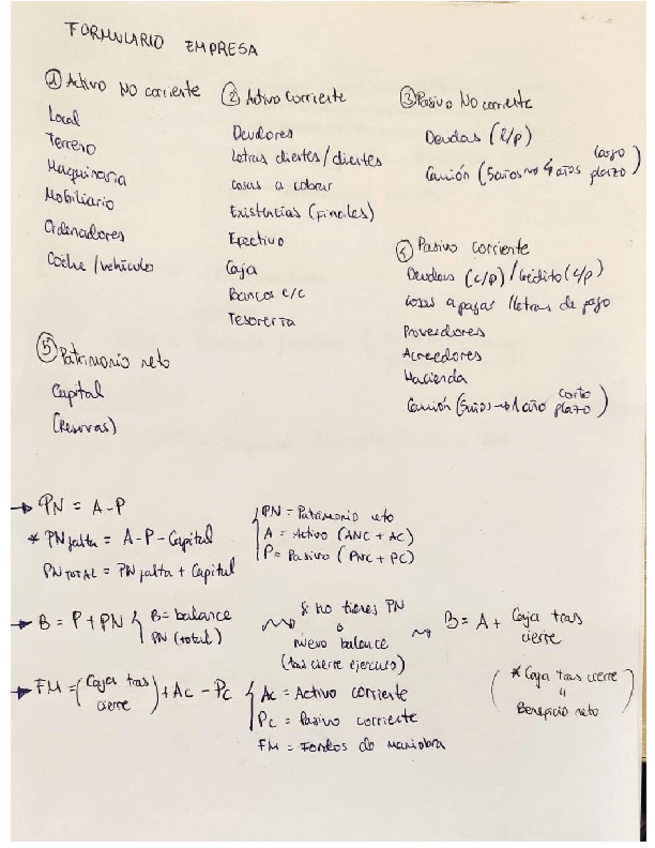 FORMULARIO EMPRESA
① Activo No corriente
Local
Terreno
Maquinaria
Mobiliario
Ordenadores
Coche / vehículo
② Activo Corriente
Deudores
Letras clientes / clientes
cosas a cobrar
Existencias (Finales)
Efectivo
Caja
Bancos c/c
Tesorería
③ Pasivo No corriente
Deudas (l/p)
Camión (5años → 4 años largo plazo)
④ Pasivo corriente
Deudas (c/p) / Crédito (c/p)
cosas a pagar / letras de pago
Proveedores
Acreedores
Hacienda
Camión (5años → 1 año corto plazo)
⑤ Patrimonio neto
Capital
(Reservas)
→ PN = A - P
* PN falta = A - P - Capital
PN TOTAL = PN falta + Capital
PN = Patrimonio neto
A = Activo (ANC + AC)
P = Pasivo (PNC + PC)
→ B = P + PN
B = balance
PN (total)
Si no tienes PN
o
nuevo balance
(tras cierre ejercicio)
B = A + Caja tras cierre
(* Caja tras cierre
=
Beneficio neto)
→ FM = (Caja tras cierre) + Ac - Pc
Ac = Activo corriente
Pc = Pasivo corriente
FM = Fondos de maniobra